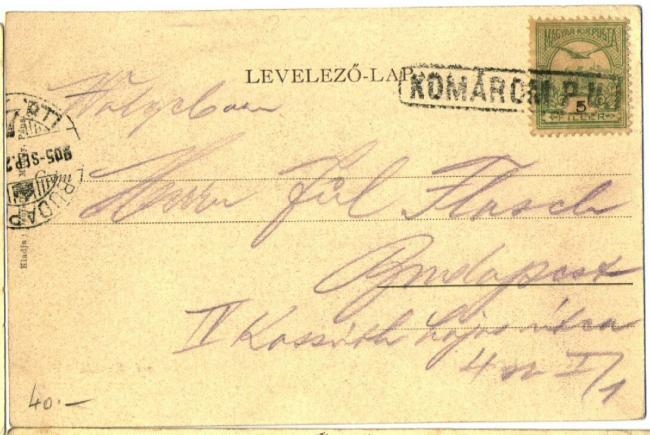 MAGYAR KIR. POSTA
LEVELEZŐ-LAP
KOMÁROM P.U.
5
FILLÉR
905 SEP. 2
BUDAP
Kiadja
Herrn Jul Flasch
Budapest
IV Kossuth Lajos utca
4 sz I/1
40.—